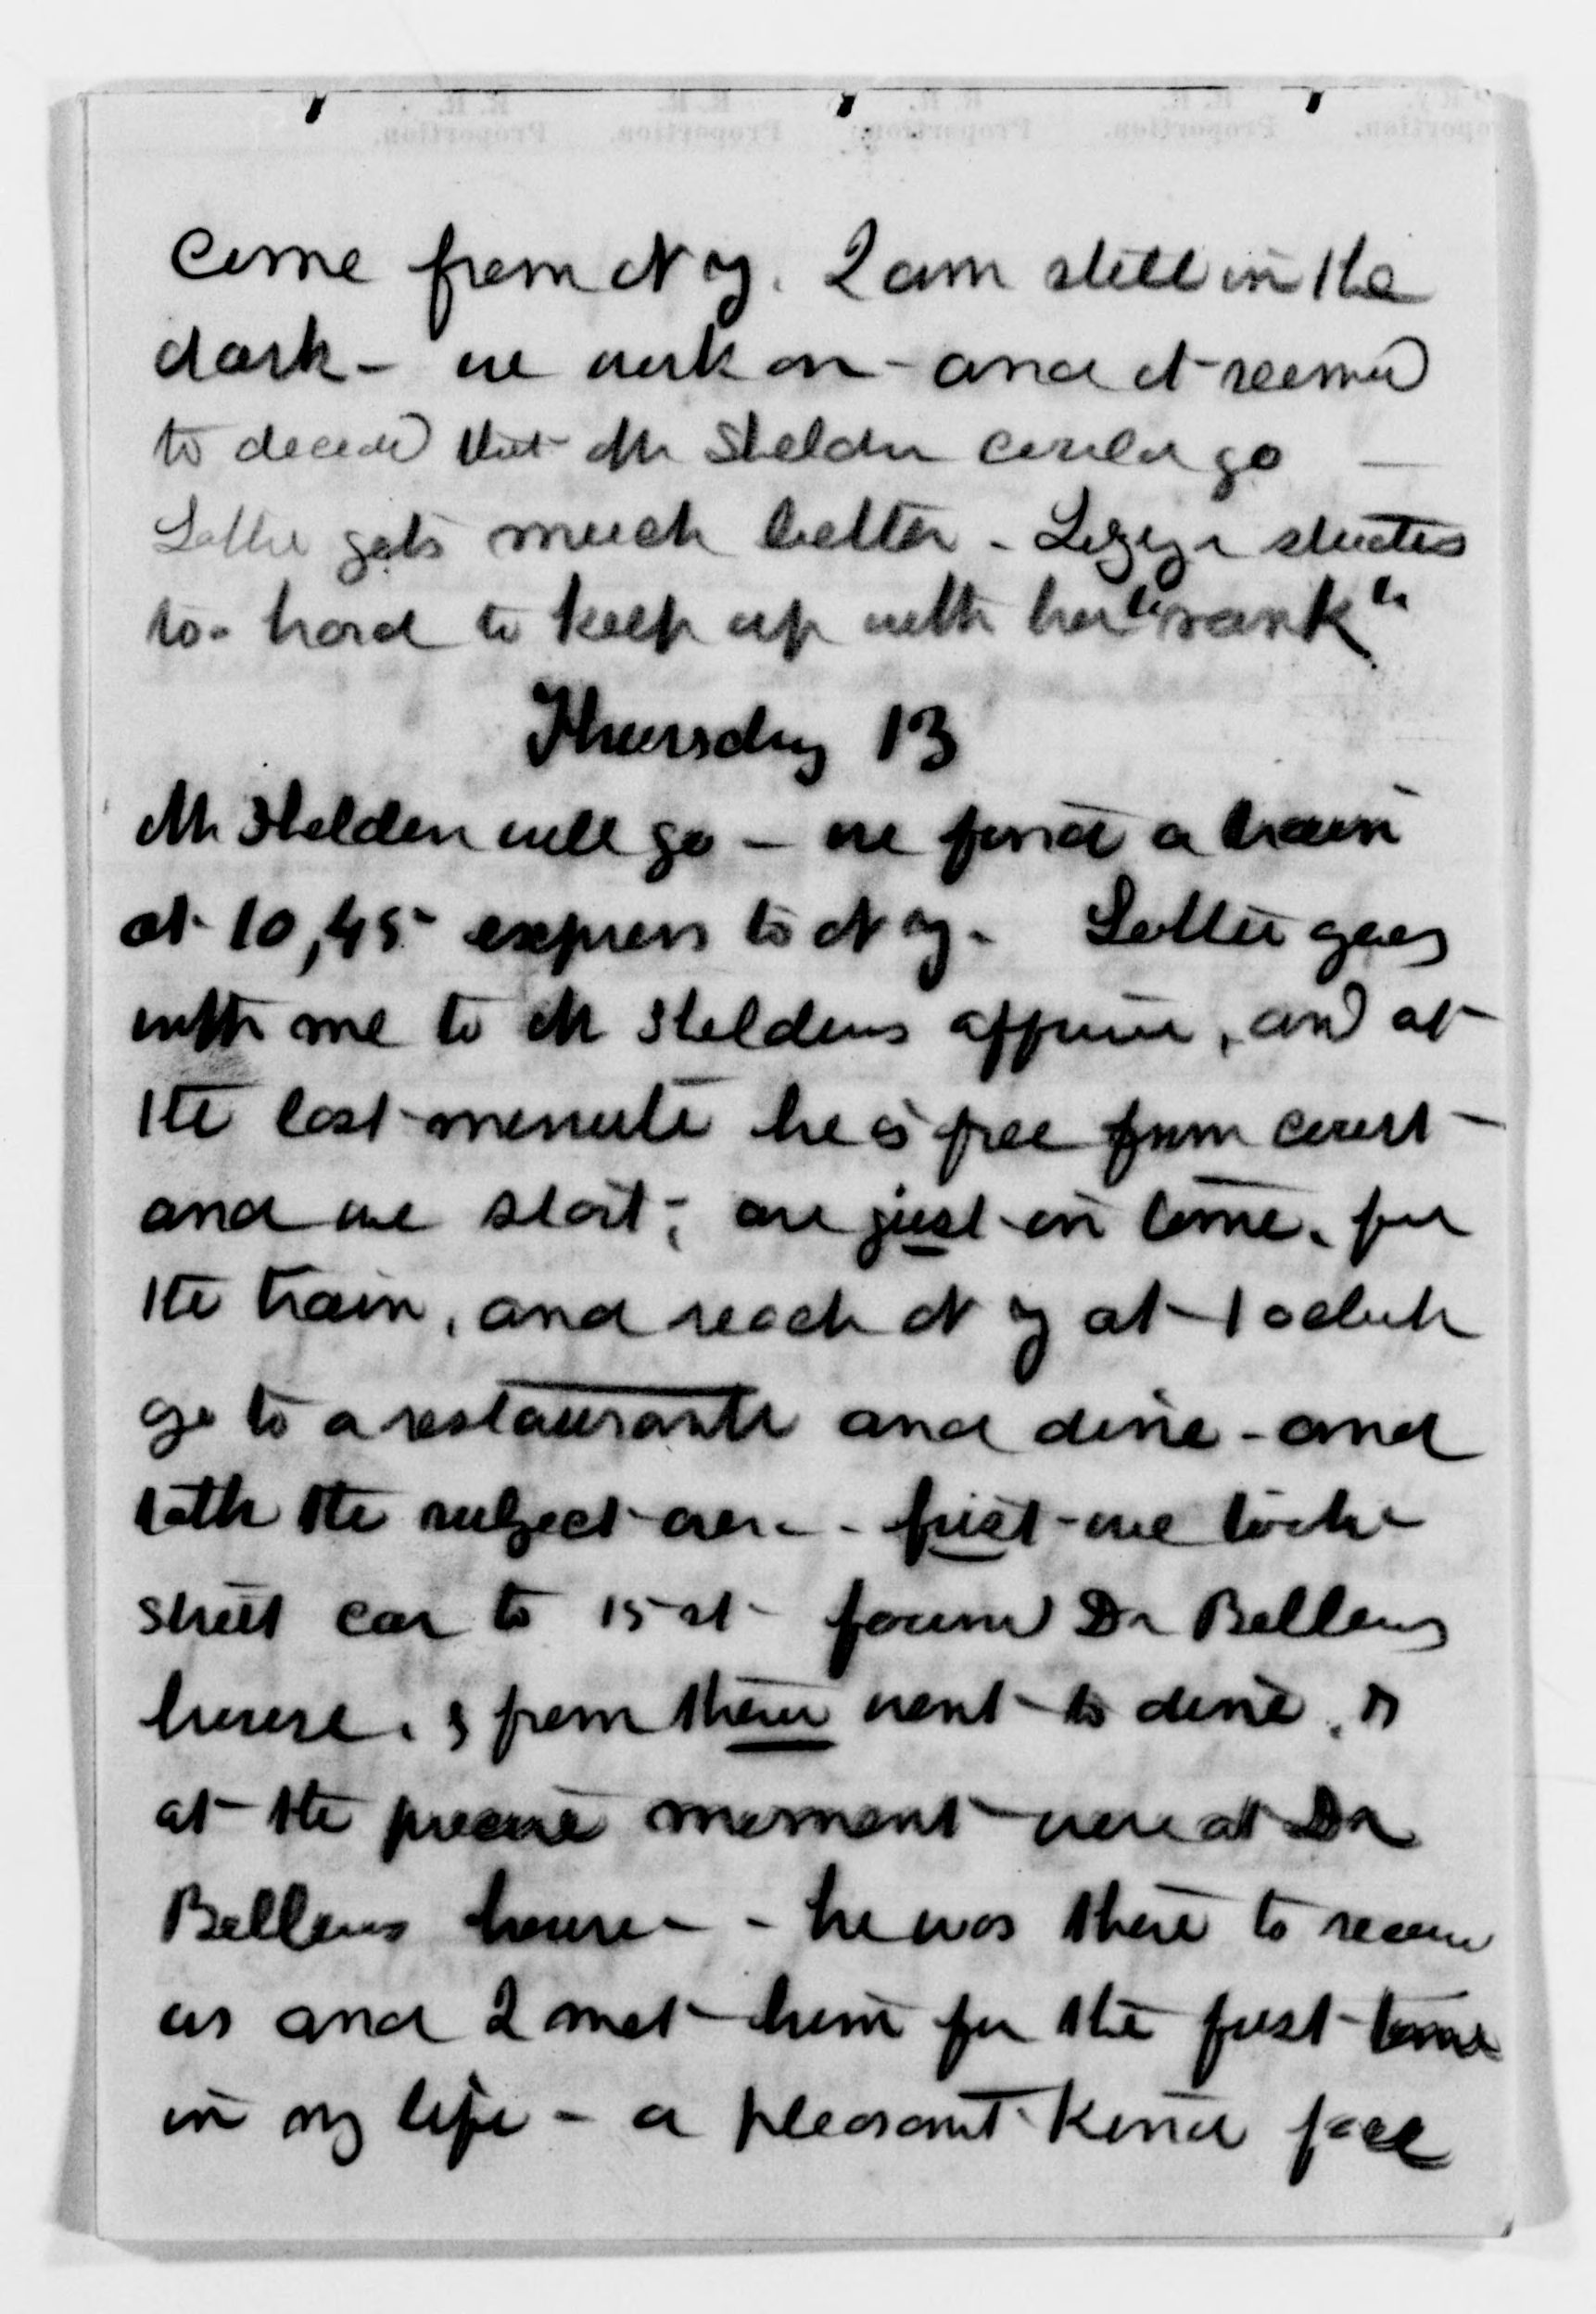 come from N Y. I am still in the
dark - we work on - and it seemed
to decide that Mr Sheldon could go —
Lottie gets much better - Lizzie studies
too hard to keep up with her "rank"
Thursday 13
Mr Sheldon will go - we find a train
at 10,45 express to N Y. Lottie goes
with me to Mr Sheldens office, and at
the last minute he is free from court -
and we start; are just in time. for
the train, and reach N Y at 1 oclock
go to a restaurante and dine - and
talk the subject over - first - we took
street car to 15 st found Dr Bellows
house. & from there went to dine, &
at the precise moment were at Dr
Bellows house - he was there to receive
us and I met him for the first time
in my life - a pleasant kind face